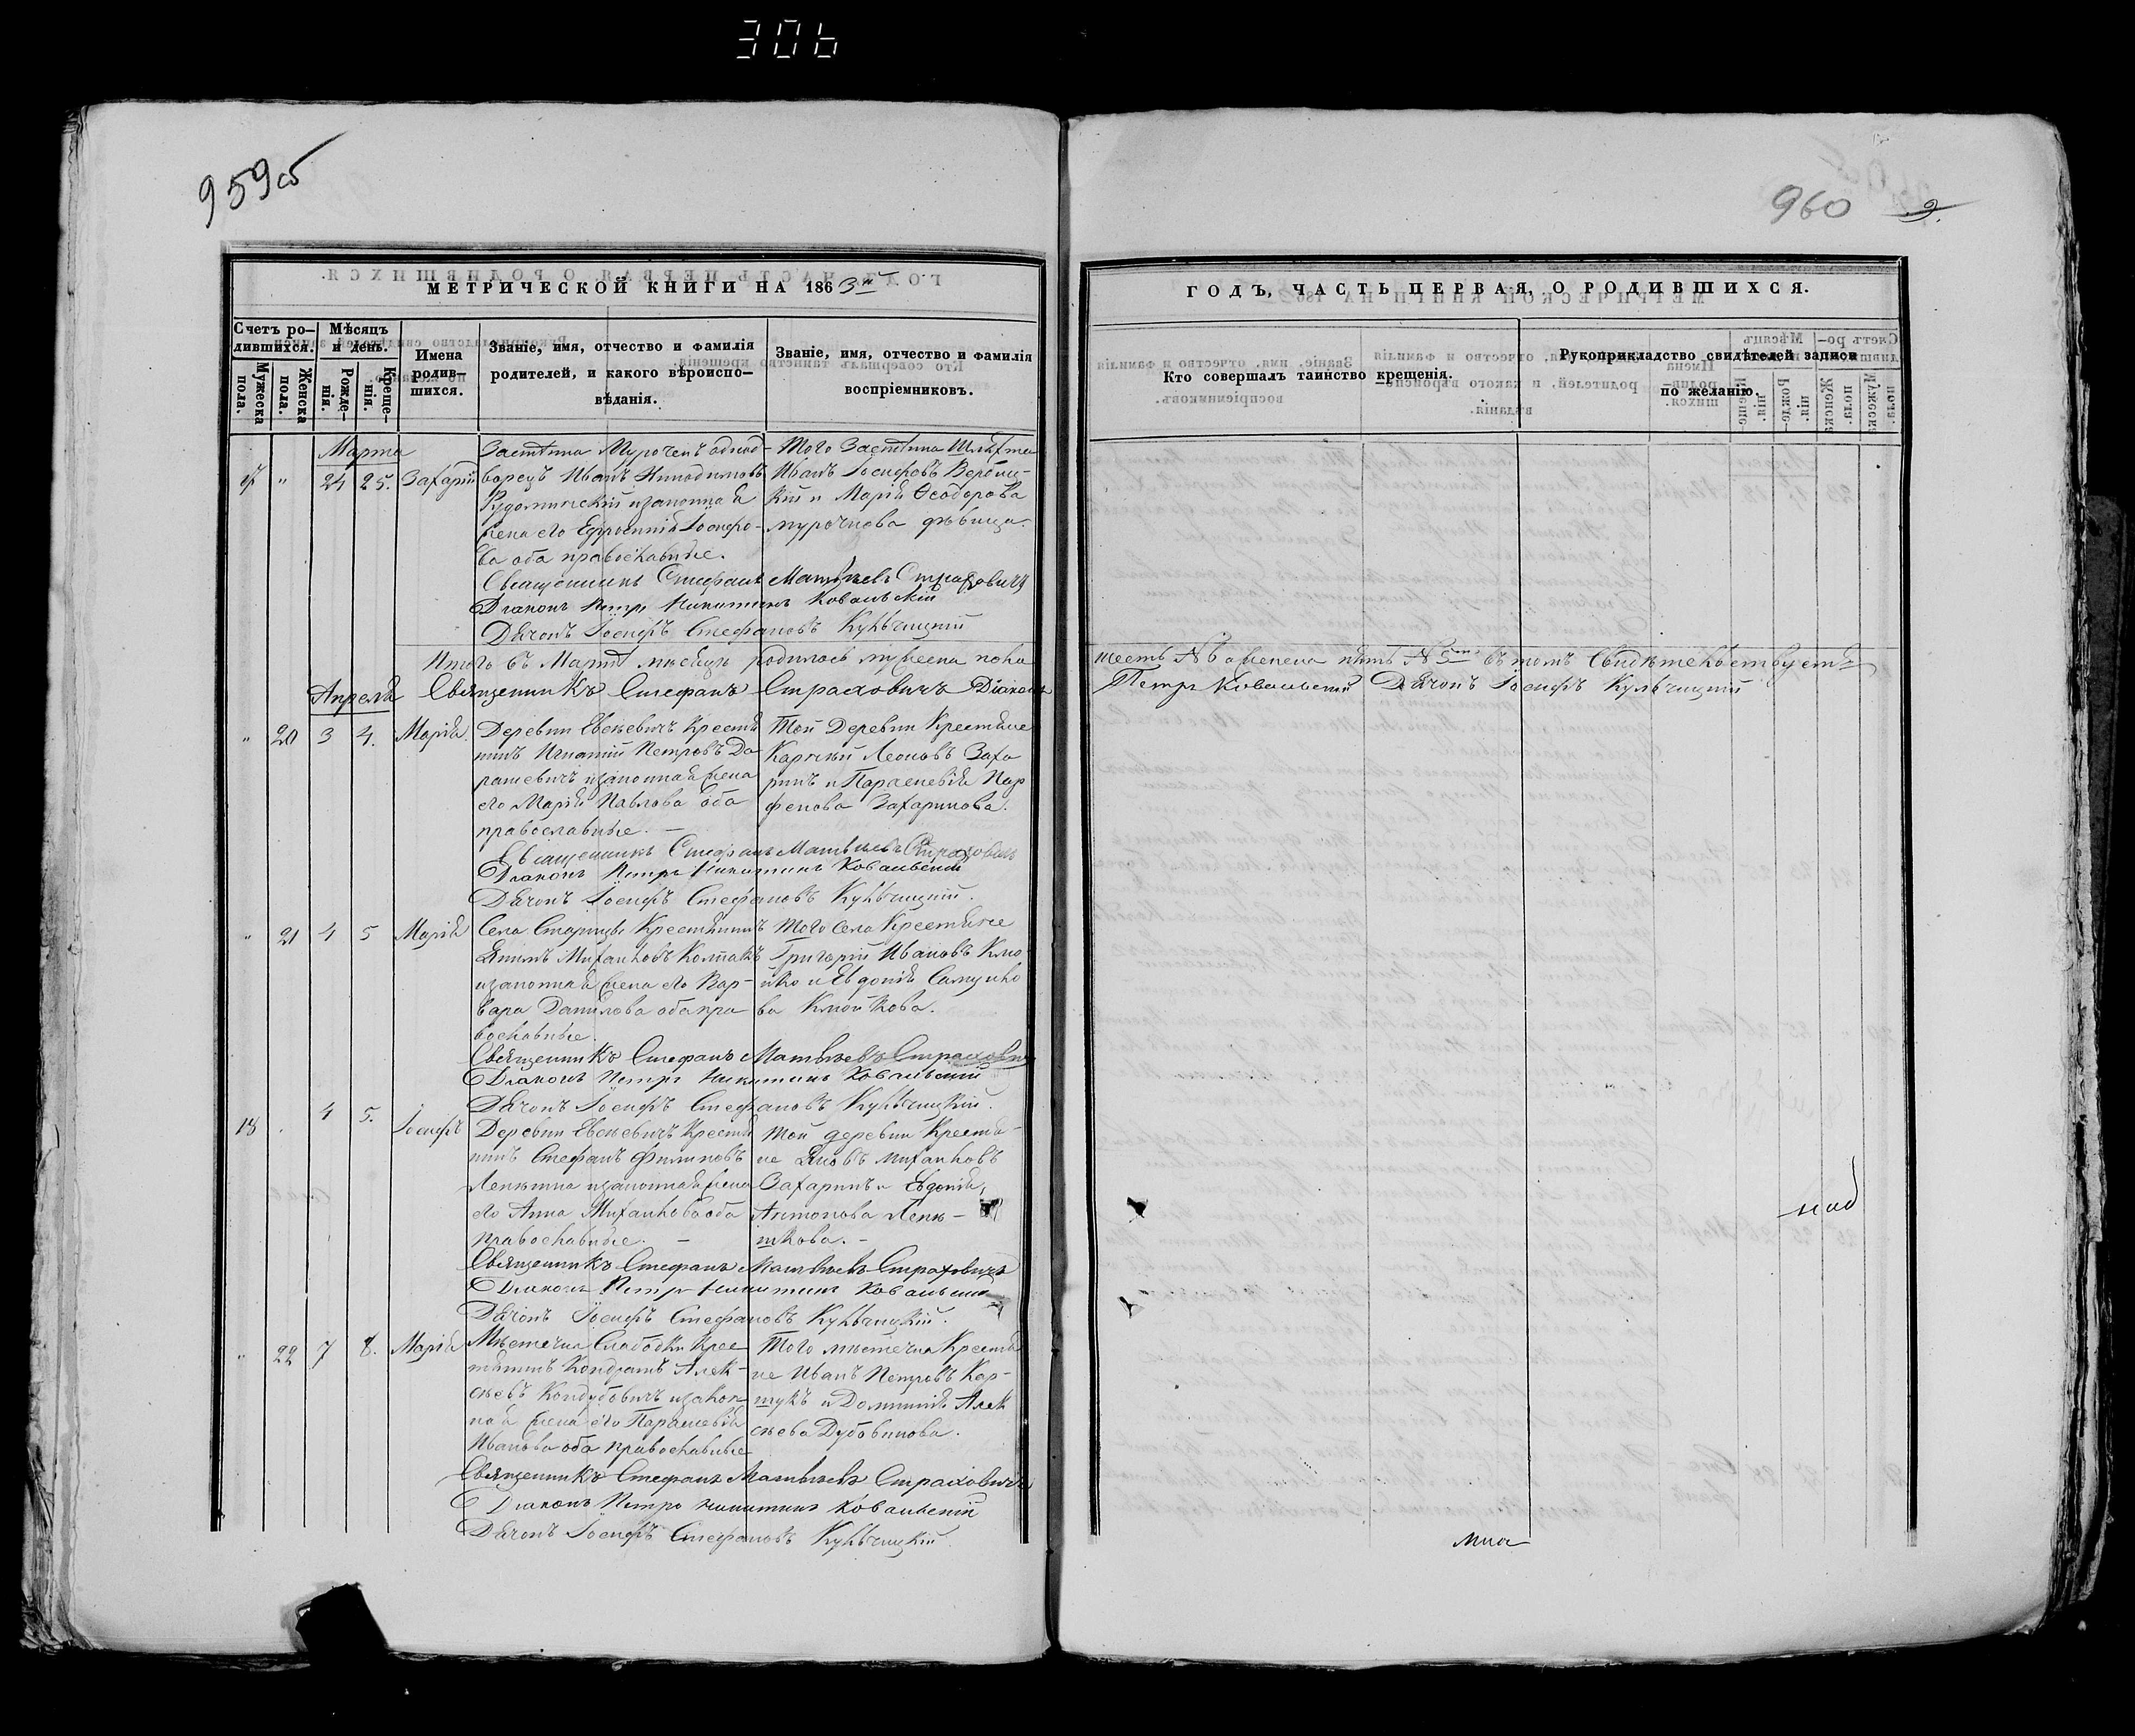 306
959 об
960 9.
МЕТРИЧЕСКОЙ КНИГИ НА 1863й
ГОДЪ, ЧАСТЬ ПЕРВАЯ, О РОДИВШИХСЯ.
Счетъ родившихся.
Мужеска пола.
Женска пола.
Мѣсяцъ и день.
Рожденія.
Крещенія.
Имена родив-
шихся.
Званіе, имя, отчество и фамилія
родителей, и какого вѣроиспо-
вѣданія.
Званіе, имя, отчество и фамилія
воспріемниковъ.
Кто совершалъ таинство крещенія.
Рукоприкладство свидѣтелей записи
по желанію.
Марта
" 24 25. Захарій
Застѣнка Мурочекъ однод-
ворецъ Иванъ
изаконная
жена его Ефросинія Іосифо-
ва оба православные.
Того Застѣнка Шляхта
Иванъ Іосифовъ Верби-
кій и Марія Ѳеодорова
дѣвица.
Священникъ Стефанъ Матвѣевъ Страховичъ
Діаконъ Петръ Никитинъ Ковальскій
Дячокъ Іосифъ Стефановъ Кульчицкій
Итого въ Мартѣ мѣсяцѣ родилось мужеска пола
шесть № 6 а женска пять № 5 въ томъ свидѣтельствуетъ
Апреля Священникъ Стефанъ Страховичъ Діаконъ
Петръ Ковальскій Дячокъ Іосифъ Кульчицкій
" 20 3 4. Марія
Деревни Евсѣевичъ Крестя
нинъ Игнатій Петровъ Да
рашевичъ изаконная жена
его Марія Павлова оба
православные. —
Той Деревни Крестяне
Леоновъ Заха
ринъ и Параскевія Пар
фенова Захаринова.
Священникъ Стефанъ Матвѣевъ Страховичъ
Діаконъ Петръ Никитинъ Ковальскій
Дячокъ Іосифъ Стефановъ Кульчицкій.
" 21 4 5 Марія
Села Старицы Крестянинъ
Якимъ Михайловъ Колпакъ
изаконная жена его Вар-
вара Данилова оба пра
вославные.
Того Села Крестяне
Григорій Ивановъ Кмо
йко и Евдокія Самуило
ва Кмойкова.
Священникъ Стефанъ Матвѣевъ Страховичъ
Діаконъ Петръ Никитинъ Ковальскій
Дячокъ Іосифъ Стефановъ Кульчицкій.
18 . 4 5. Іосифъ
Деревни Евсѣевичъ Крестя
нинъ Стефанъ Филиповъ
изаконная жена
его Анна Михайлова оба
православные. —
Той деревни Крестя-
не Яковъ Михайловъ
Захаринъ и Евдокія
Антонова
Священникъ Стефанъ Матвѣевъ Страховичъ
Діаконъ Петръ Никитинъ Ковальскій
Дячокъ Іосифъ Стефановъ Кульчицкій.
" 22 7 8. Марія
Мѣстечка Слабодки Крес
тянинъ Кондратъ Алек-
сѣевъ изакон-
ная жена его Параскевія
Иванова оба православные
Того мѣстечка Крестя
не Иванъ Петровъ Кар-
и Домникія Алек
сѣева Дубовикова.
Священникъ Стефанъ Матвѣевъ Страховичъ
Діаконъ Петръ Никитинъ Ковальскій
Дячокъ Іосифъ Стефановъ Кульчицкій